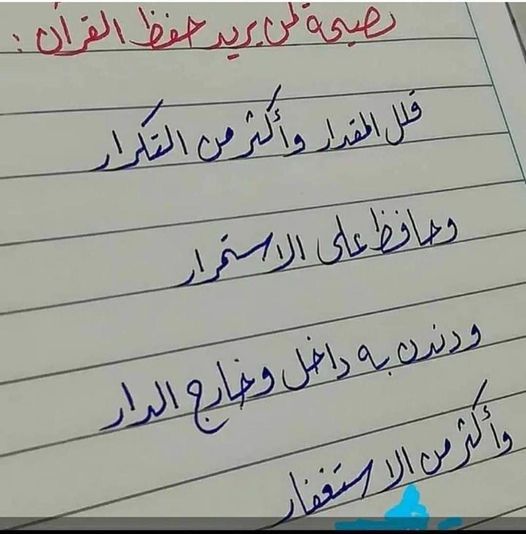 نصيحة لمن يريد حفظ القرآن :
قلل المقدار وأكثر من التكرار
وحافظ على الاستمرار
ودندن به داخل وخارج الدار
وأكثر من الاستغفار